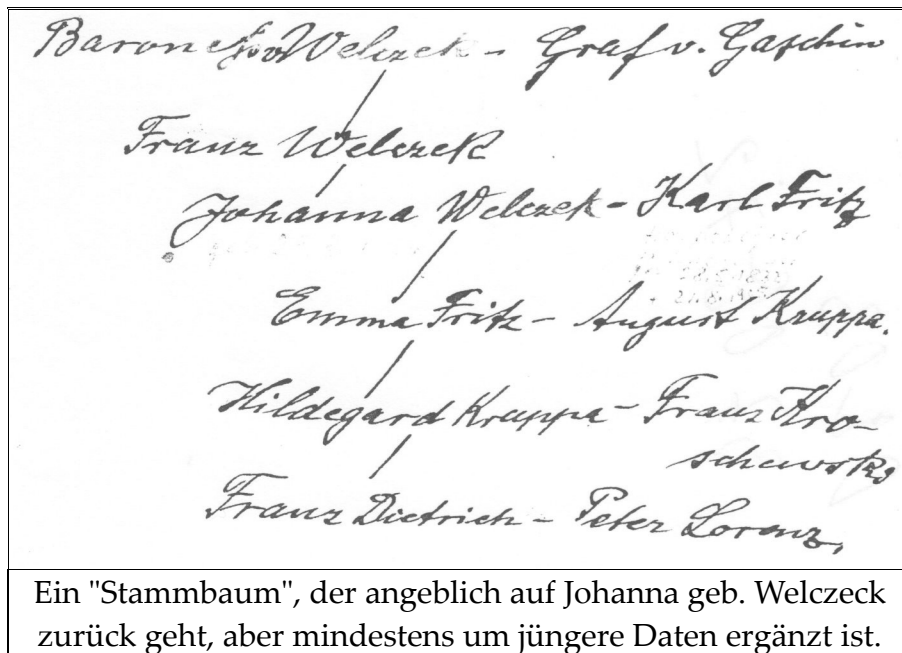 Baroneß v Welczek - Graf v. Gaschin
Franz Welczek
Johanna Welczek - Karl Fritz
Emma Fritz - August Kruppa.
Hildegard Kruppa - Franz Kro-
schewski
Franz Dietrich - Peter Lorenz.
Ein "Stammbaum", der angeblich auf Johanna geb. Welczeck
zurück geht, aber mindestens um jüngere Daten ergänzt ist.